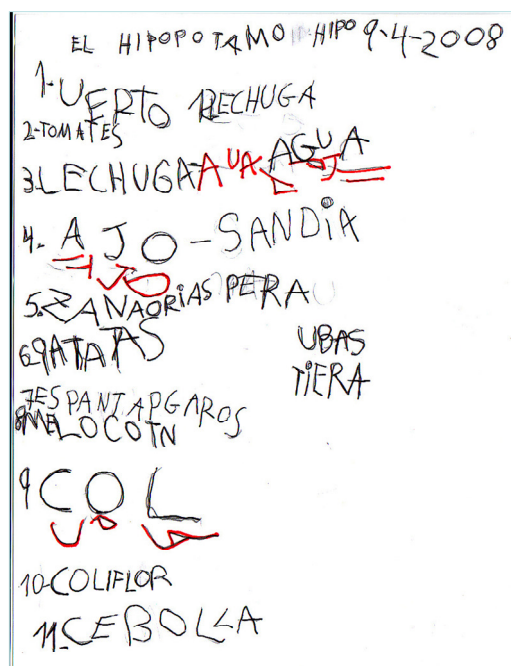 EL HIPOPOTAMO HIPO 9-4-2008
1-UERTO LECHUGA
2-TOMATES
3-LECHUGA-AUA AGUA
4- AJO - SANDiA
5-ZANAORiAS PERA
6-PATATAS UBAS
TiERA
7ESPANTAPGAROS
8MELOCOTN
9 COL
10-COLIFLOR
11-CEBOLLA